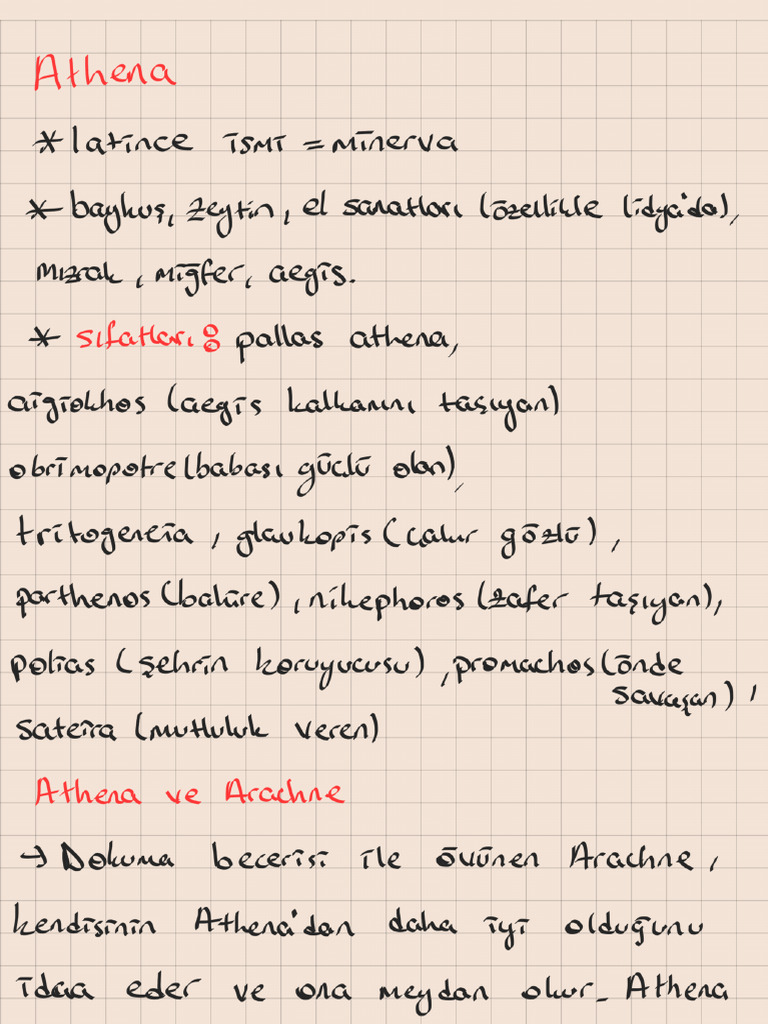 Athena
* latince ismi = minerva
* baykuş, zeytin, el sanatları (özellikle lidya'da),
mızrak, miğfer, aegis.
* sıfatları: pallas athena,
aigiokhos (aegis kalkanını taşıyan)
obrimopatre (babası güçlü olan),
tritogeneia, glaukopis (çakır gözlü),
parthenos (bakire), nikephoros (zafer taşıyan),
polias (şehrin koruyucusu), promachos (önde
savaşan),
sateira (mutluluk veren)
Athena ve Arachne
→ Dokuma becerisi ile övünen Arachne,
kendisinin Athena'dan daha iyi olduğunu
idaa eder ve ona meydan okur. Athena